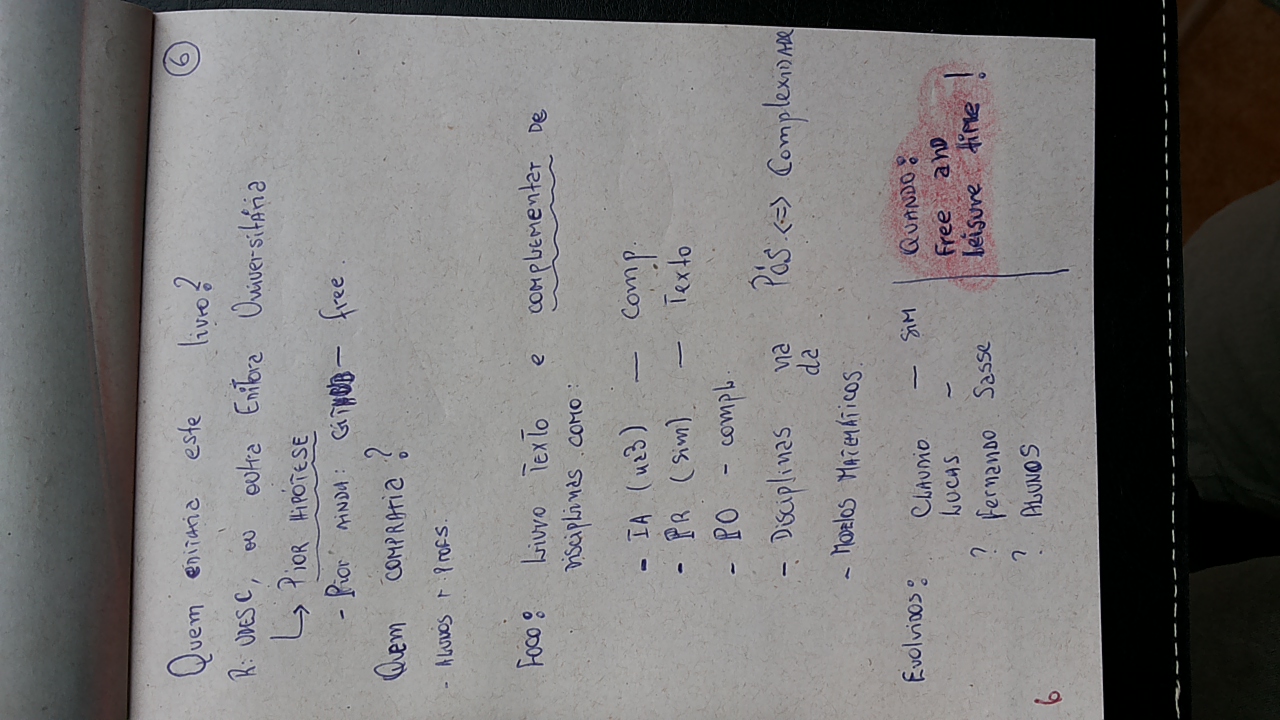 6
Quem editaria este livro?
R: UDESC, ou outra Editora Universitária
↳ PIOR HIPÓTESE
- Pior AINDA: GITHUB — free.
Quem COMPRARIA?
- ALUNOS + PROFS.
Foco: Livro Texto e complementar DE
DISCIPLINAS como:
- IA (1/3) — Comp.
- PR (sim) — Texto
- PO - compl.
- Disciplinas na PÓS <=> Complexidade
da
- MODELOS MATEMÁTICOS.
Evolvidos: CLAUDIO — SIM
LUCAS ~
? Fernando Sasse
? ALUNOS
QUANDO:
free and
leisure time!
6